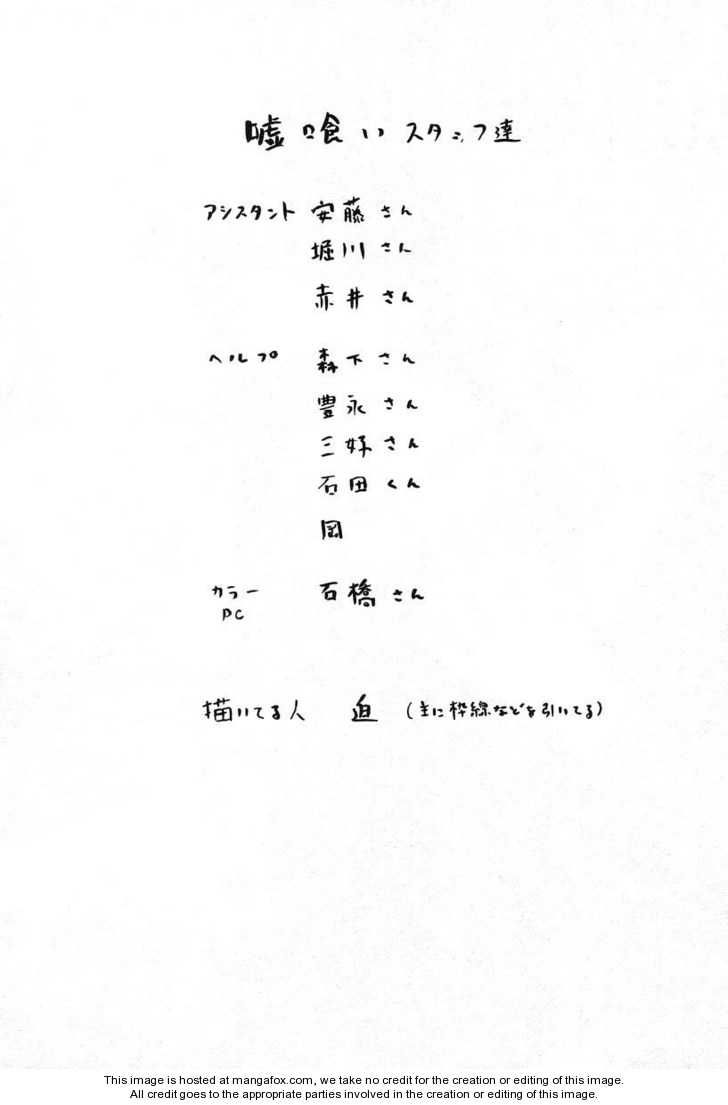 嘘喰い スタッフ達
アシスタント 安藤さん
堀川さん
赤井さん
ヘルプ 森下さん
豊永さん
三好さん
石田くん
岡
カラー 石橋さん
PC
描いてる人 迫 (主に枠線などを引いてる)
This image is hosted at mangafox.com, we take no credit for the creation or editing of this image.
All credit goes to the appropriate parties involved in the creation or editing of this image.